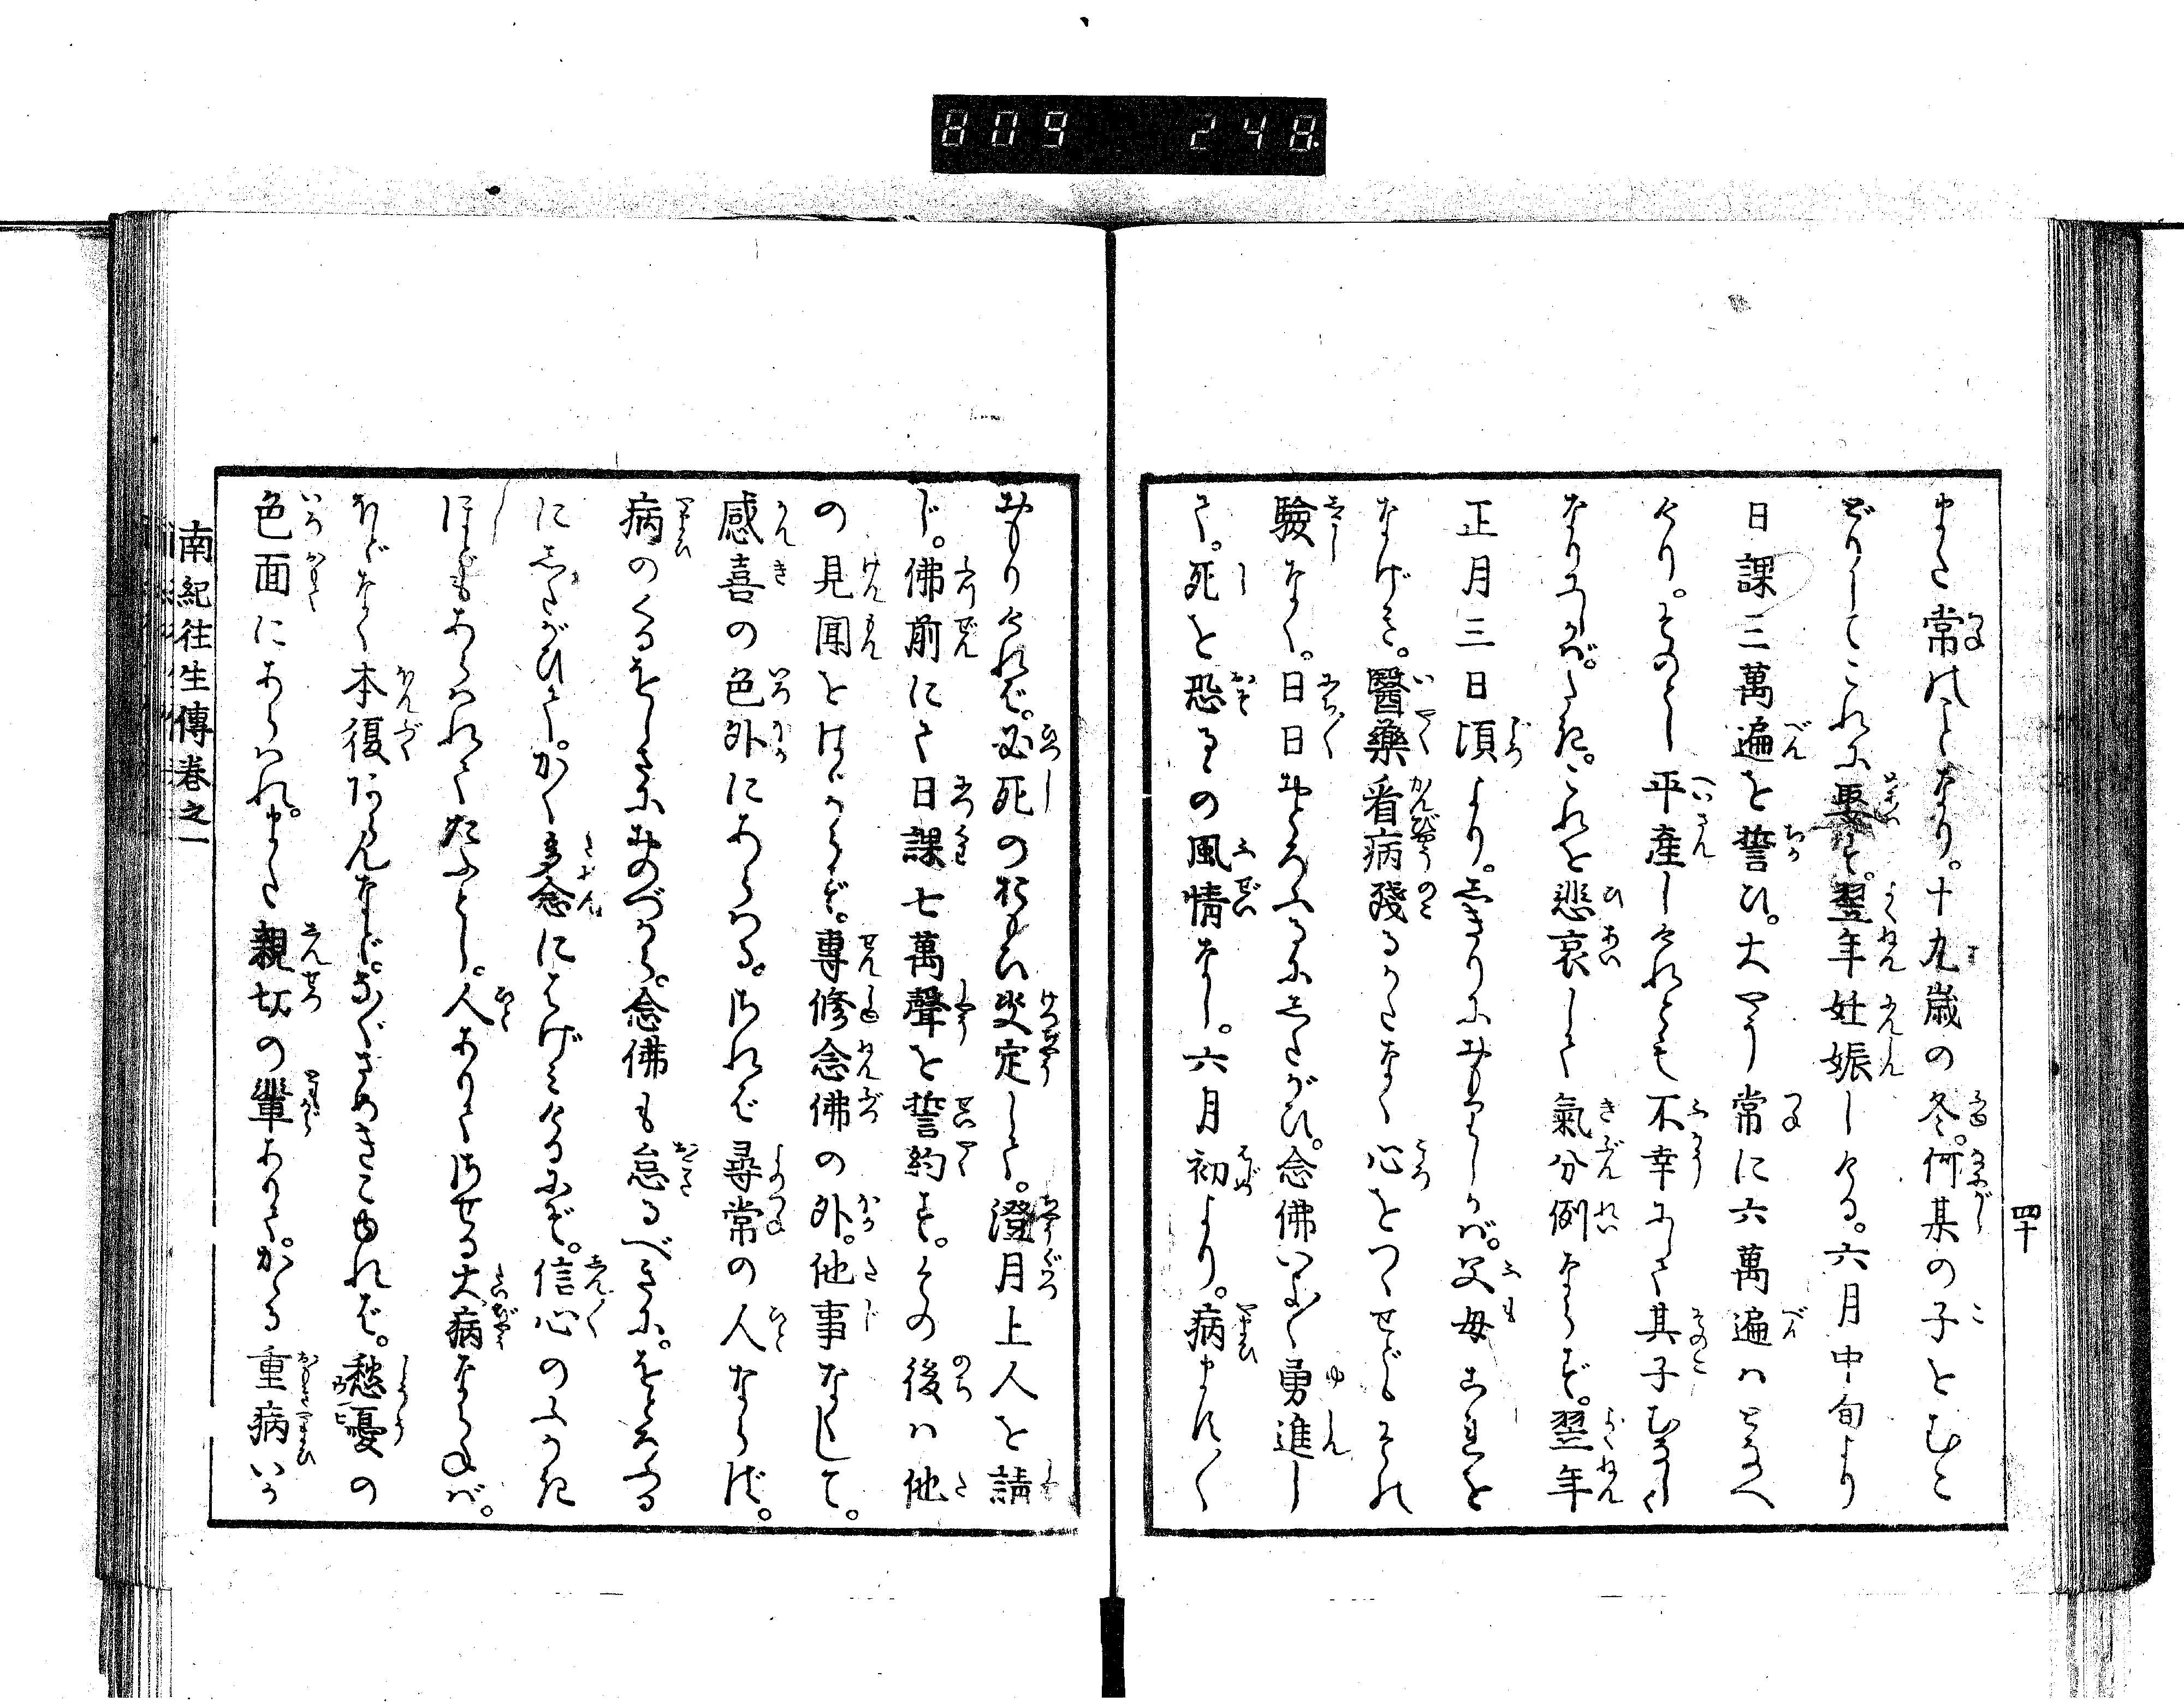 809 248
また常のことなり。十九歳の冬。何某の子とむこ
どりしてこれに娶す。翌年妊娠しける。六月中旬より
日課三萬遍を誓ひ。大やう常に六萬遍ハとなへ
けり。そのとし平産しけれとも不幸にして其子むなしく
なりにしかば。これを悲哀して氣分例ならず。翌年
正月三日頃より。しきりにおもりしかば。父母これを
なげき。醫藥看病殘るかたなく心をつくせどもそれ
驗なく。日日おとろふるにしたがひ。念佛いよ〱勇進し
て。死を恐るゝの風情なし。六月初より。病ます〱
おもりければ。必死のおもひ決定して。澄月上人を請
じ。佛前にて日課七萬聲を誓約す。その後ハ他
の見聞をはゞからず。專修念佛の外。他事なくして。
感喜の色外にあらはる。されば尋常の人ならば。
病のくるをしさにおのづから。念佛も怠るべきに。おとろふる
にしたがひて。かく多念にはげみけるにぞ。信心のふかき
ほどもあらはれてたふとし。人ありてさせる大病ならねば。
ほどなく本復あらんなど。なぐさめきこゆれば。愁憂の
色面にあらはれ。また親切の輩ありて。かゝる重病いか
南紀往生傳卷之一
四十